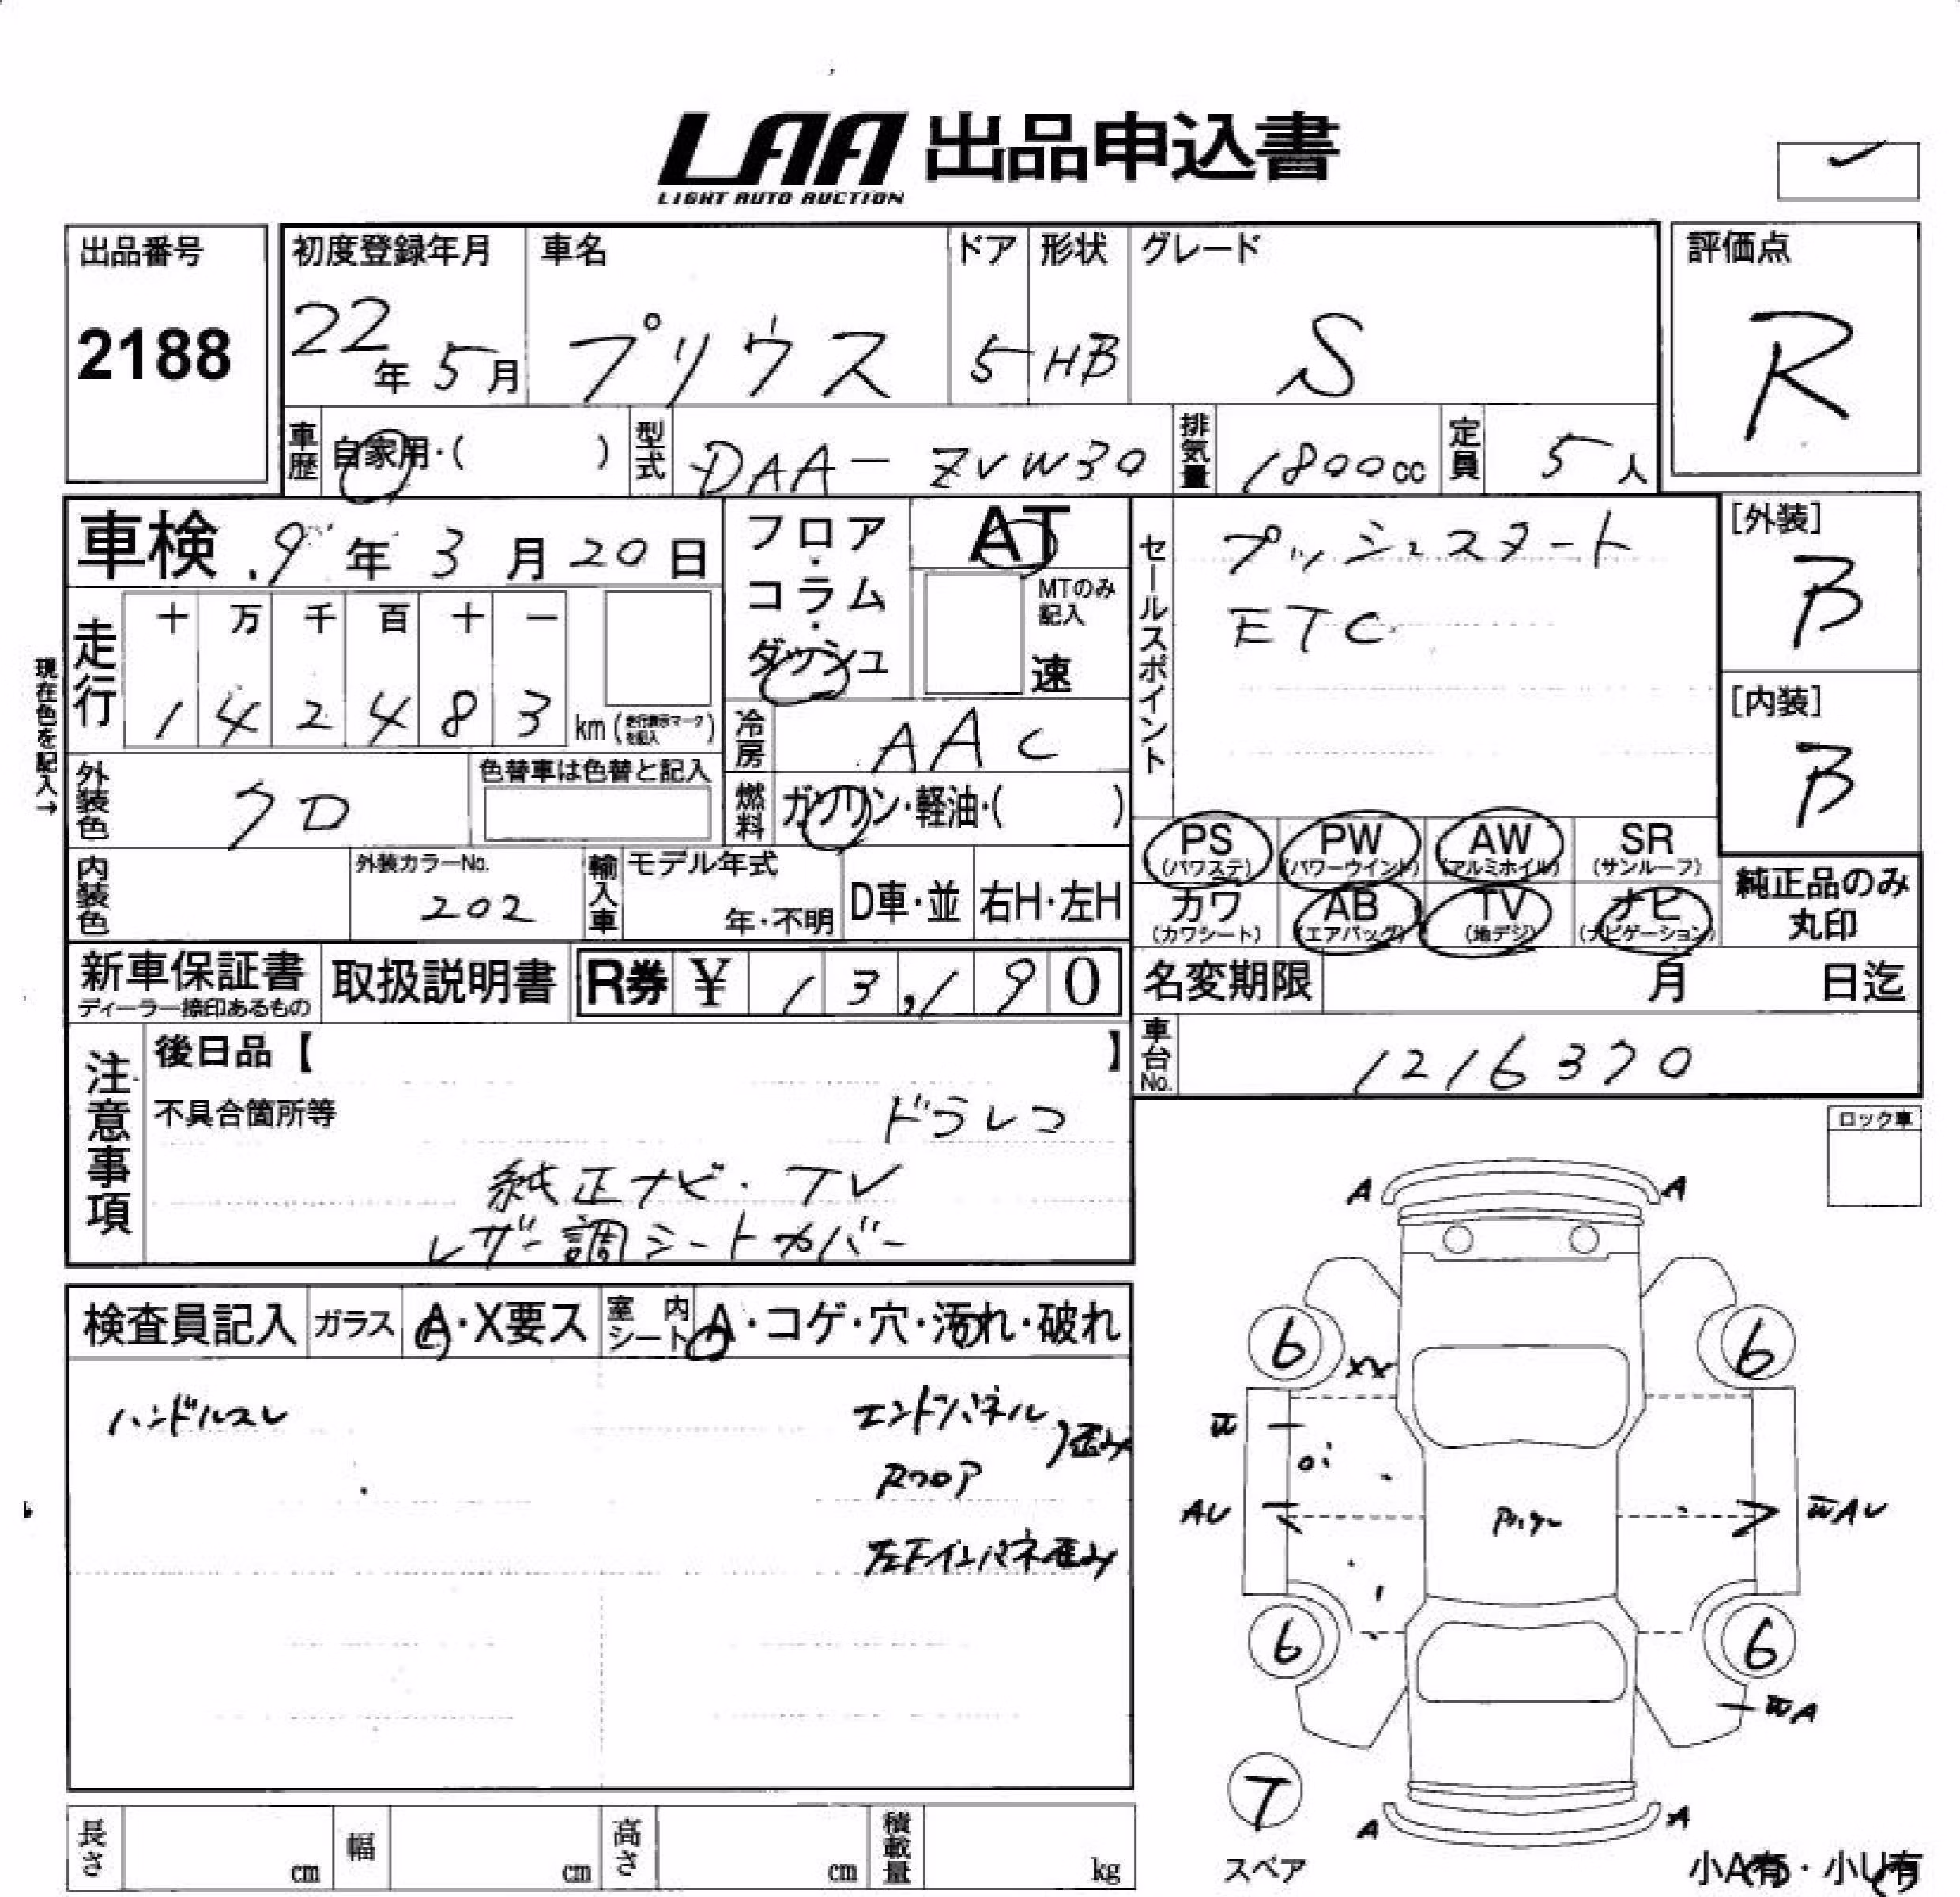 LAA 出品申込書
LIGHT AUTO AUCTION
出品番号
2188
初度登録年月 車名 ドア 形状 グレード
22年 5月 プリウス 5 HB S
評価点
R
車歴 自家用・( ) 型式 DAA-ZVW30 排気量 1800cc 定員 5人
車検 9年 3月 20日
フロア・コラム・ダッシュ
AT
MTのみ記入
速
セールスポイント
プッシュスタート
ETC
[外装]
B
[内装]
B
現在色を記入→
走行 十 万 千 百 十 一
1 4 2 4 8 3 km (走行表示マークを記入)
冷房 AAC
外装色 クロ 色替車は色替と記入
燃料 ガソリン・軽油・( )
PS (パワステ) PW (パワーウインド) AW (アルミホイル) SR (サンルーフ)
カワ (カワシート) AB (エアバッグ) TV (地デジ) ナビ (ナビゲーション)
純正品のみ丸印
内装色 外装カラーNo. 202 輸入車 モデル年式 年・不明 D車・並 右H・左H
新車保証書 ディーラー捺印あるもの 取扱説明書 R券 ¥ 13,190
名変期限 月 日迄
車台No. 1216370
注意事項
後日品【 】
不具合箇所等 ドラレコ
純正ナビ・TV
レザー調シートカバー
ロック車
検査員記入 ガラス A・X要ス 室内シート A・コゲ・穴・汚れ・破れ
ハンドルスレ
エンドパネル
Rフロア
歪み
左Fインパネ歪み
A A
6 6
XX
AU
6 6
T
スペア
A A
小A有・小U有
長さ cm 幅 cm 高さ cm 積載量 kg